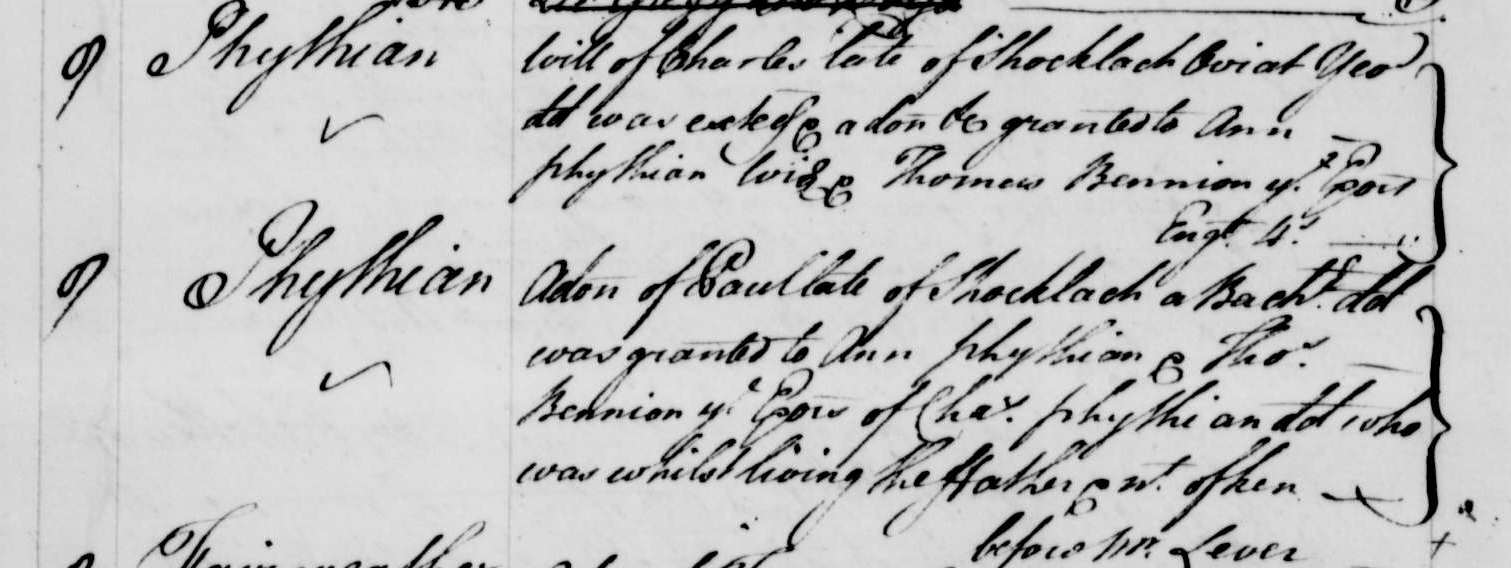 9 Phythian Will of Charles late of Shocklach Oviat Yeo
dd was exted & adon &c granted to Ann
phythian Wid & Thomas Bennion ye Exors
Engt. 4.s
9 Phythian Adon of Paul late of Shocklach a Bachr. dd
was granted to Ann phythian & Thos.
Bennion ye Exors of Chas. phythian dd who
was whilst living the ffather & nt. of kin
before Mr. Lever